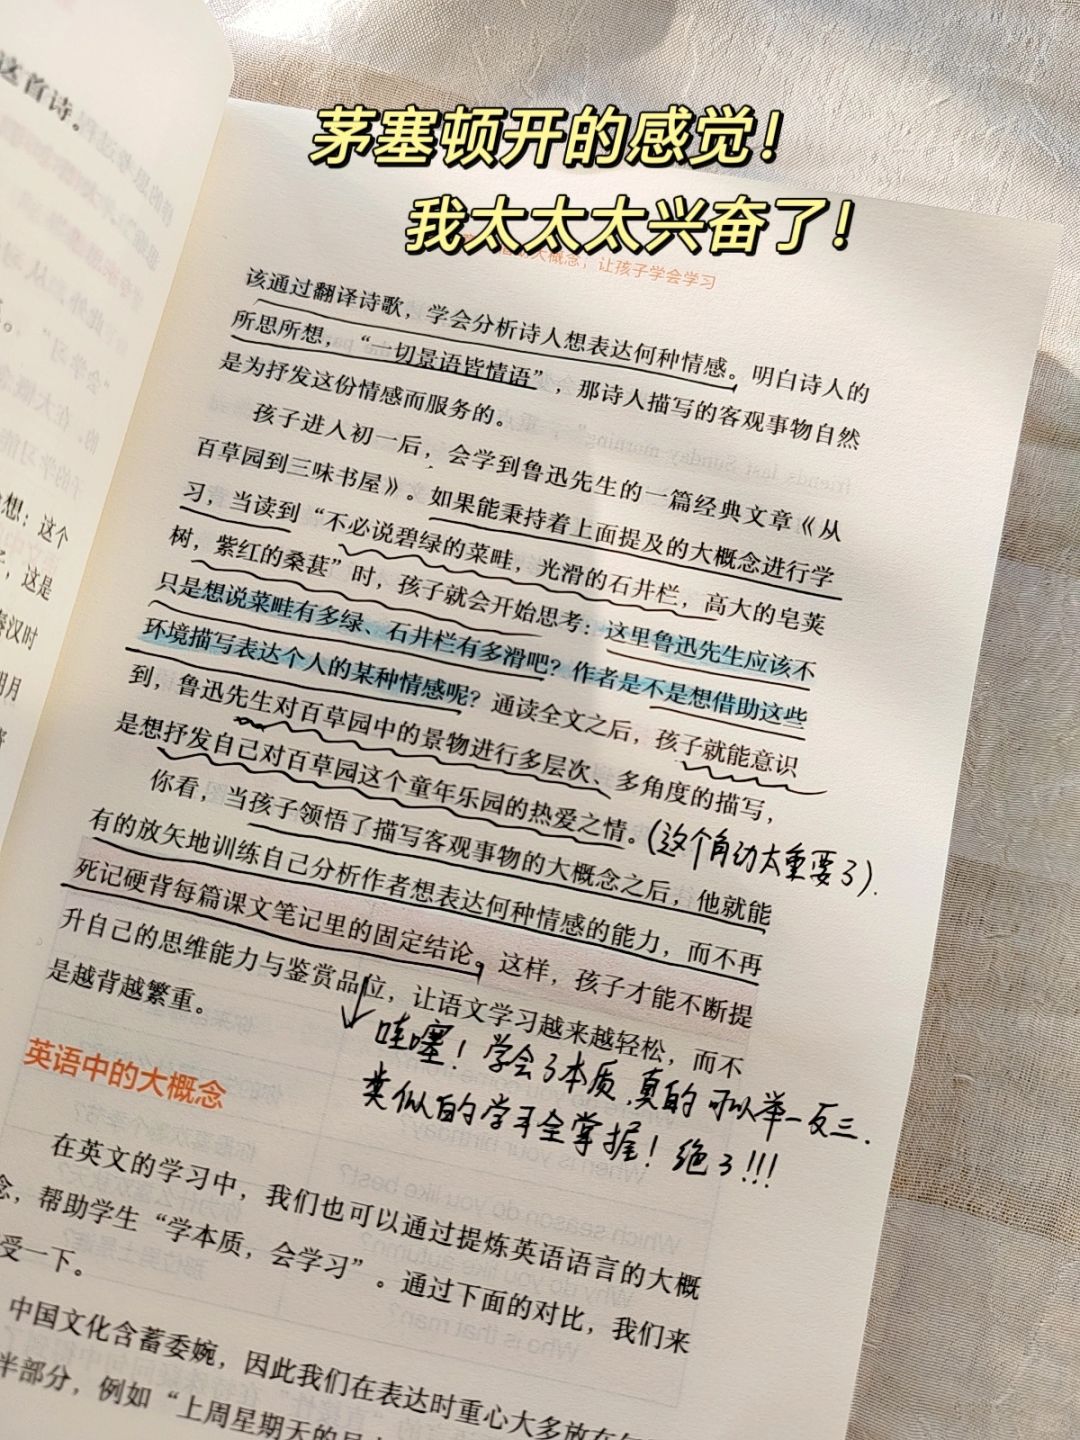 茅塞顿开的感觉！
我太太太兴奋了！
大概念，让孩子学会学习
这首诗。
想：这个
，这是
汉时
明月
该通过翻译诗歌，学会分析诗人想表达何种情感。明白诗人的
所思所想，“一切景语皆情语”，那诗人描写的客观事物自然
是为抒发这份情感而服务的。
孩子进入初一后，会学到鲁迅先生的一篇经典文章《从
百草园到三味书屋》。如果能秉持着上面提及的大概念进行学
习，当读到“不必说碧绿的菜畦，光滑的石井栏，高大的皂荚
树，紫红的桑葚”时，孩子就会开始思考：这里鲁迅先生应该不
只是想说菜畦有多绿、石井栏有多滑吧？作者是不是想借助这些
环境描写表达个人的某种情感呢？通读全文之后，孩子就能意识
到，鲁迅先生对百草园中的景物进行多层次、多角度的描写，
是想抒发自己对百草园这个童年乐园的热爱之情。
（这个角动太重要了）.
你看，当孩子领悟了描写客观事物的大概念之后，他就能
有的放矢地训练自己分析作者想表达何种情感的能力，而不再
死记硬背每篇课文笔记里的固定结论。这样，孩子才能不断提
升自己的思维能力与鉴赏品位，让语文学习越来越轻松，而不
是越背越繁重。
哇噻！学会了本质，真的可以举一反三.
类似的学习全掌握！绝了!!!
英语中的大概念
在英文的学习中，我们也可以通过提炼英语语言的大概
念，帮助学生“学本质，会学习”。通过下面的对比，我们来
受一下。
中国文化含蓄委婉，因此我们在表达时重心大多放在
半部分，例如“上周星期天的早